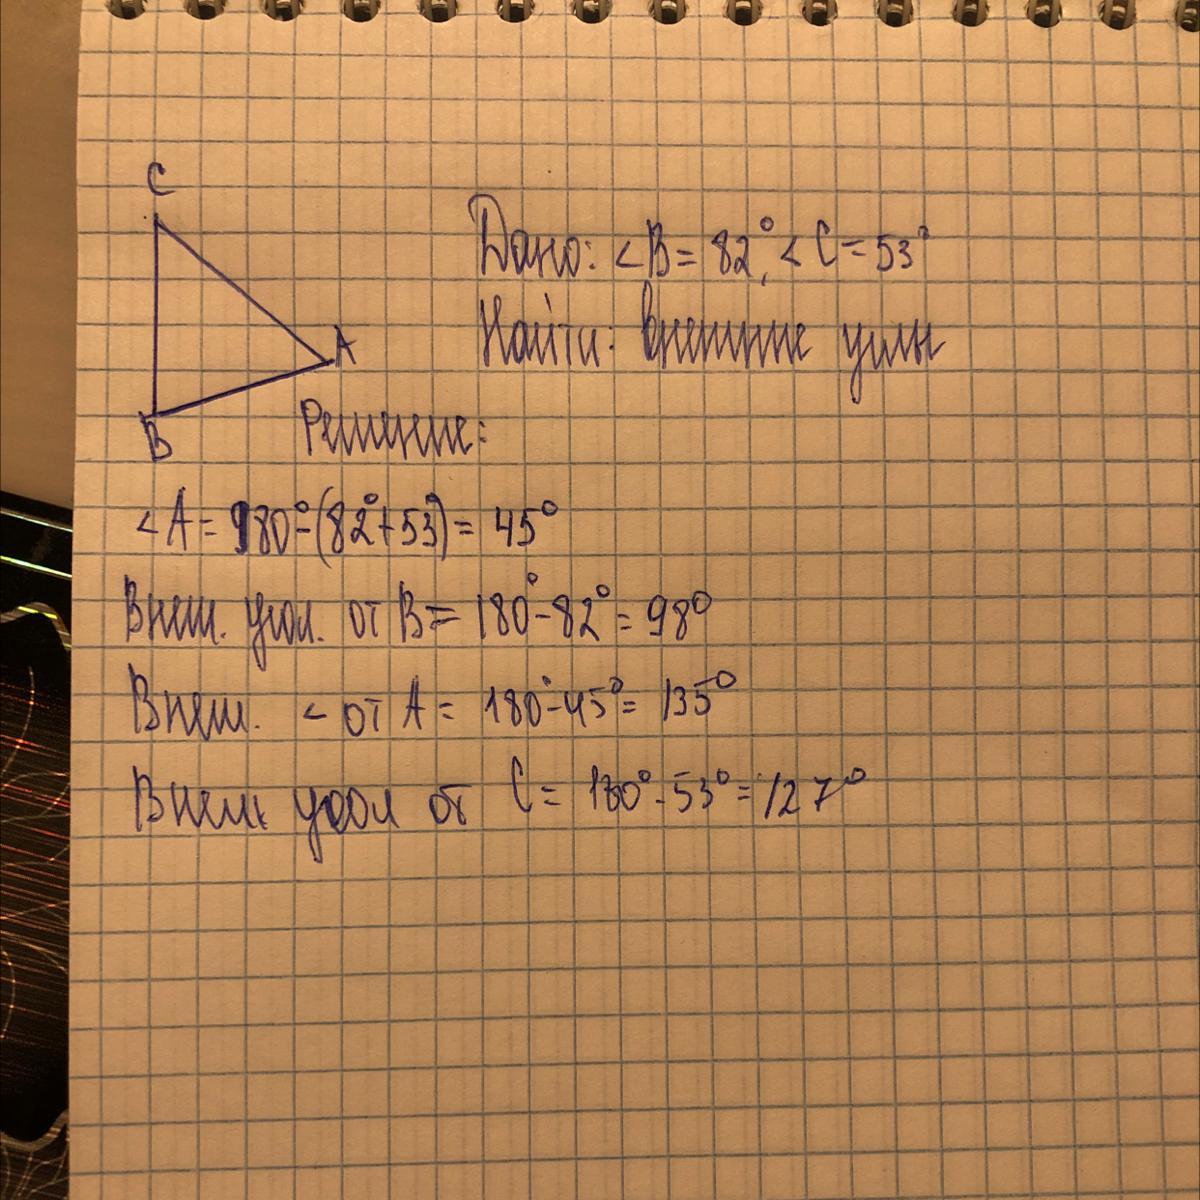 C
Дано: <B = 82°, < C = 53°
Найти: внешние углы
A
B
Решение:
< A = 180° - (82° + 53°) = 45°
Внеш. угол. от B = 180° - 82° = 98°
Внеш. < от A = 180° - 45° = 135°
Внеш угол от C = 180° - 53° = 127°